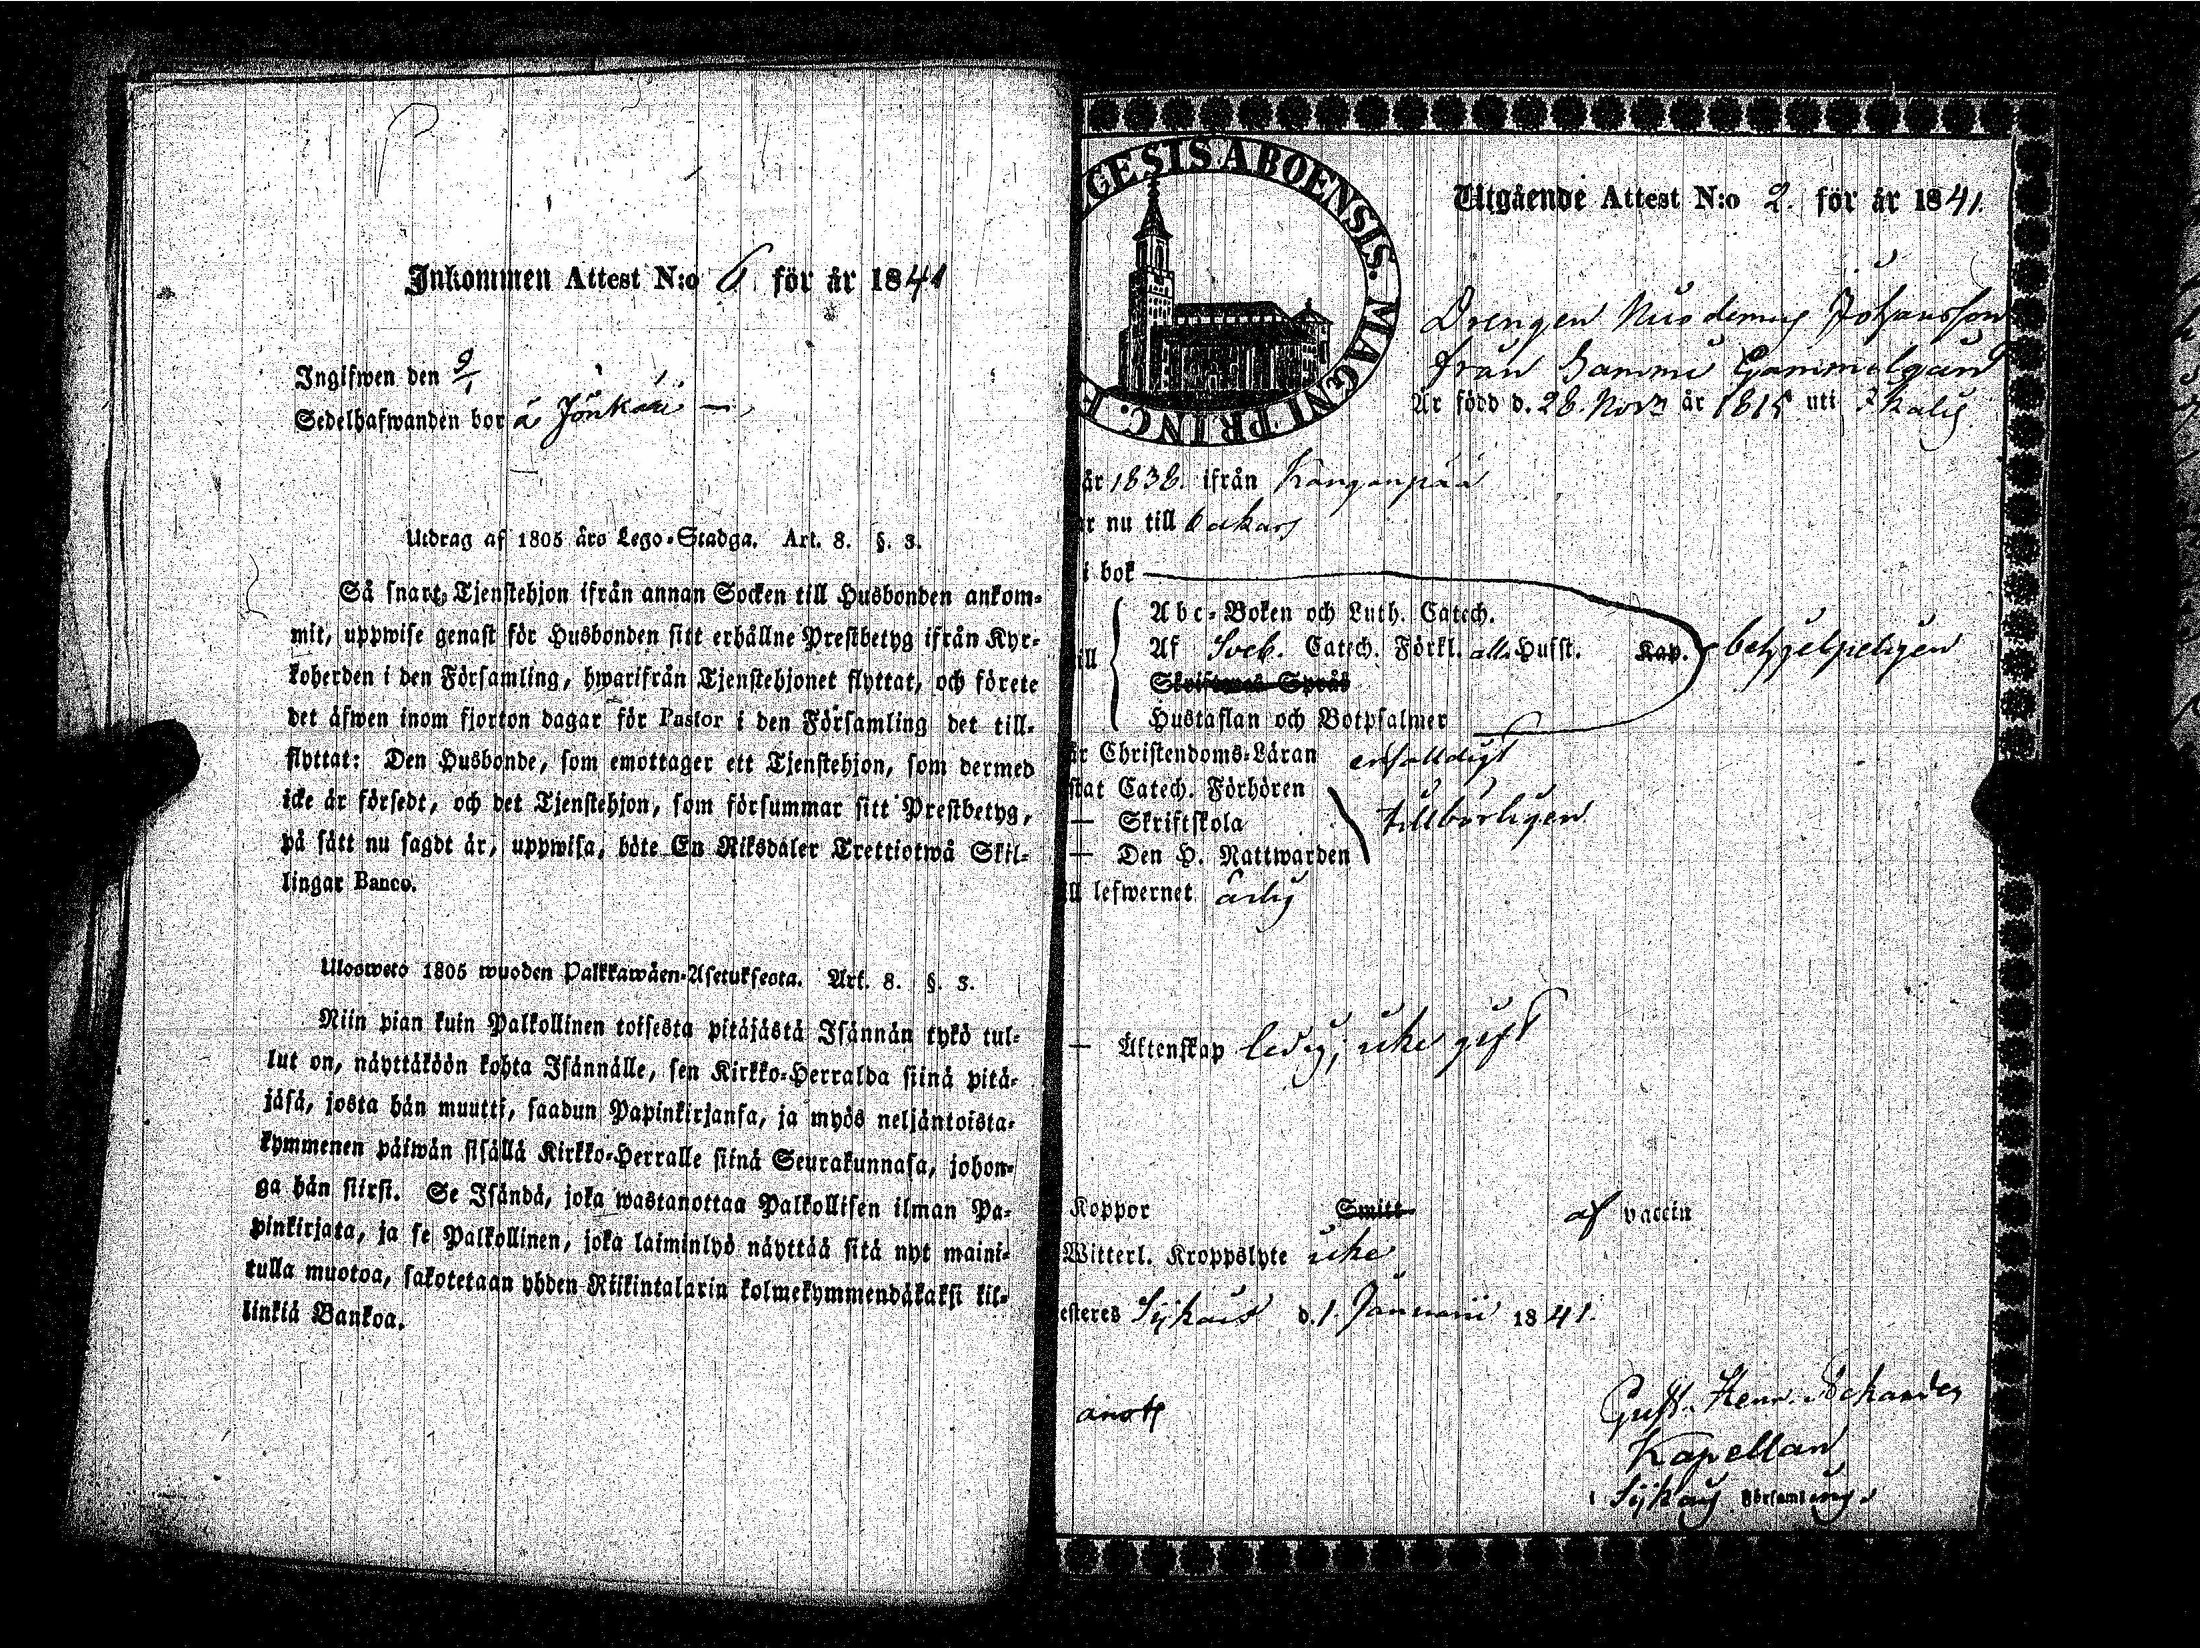 Inkommen Attest N:o 6 för år 1841
Ingifwen den 9/1
Sedelhafwanden bor å
Utdrag af 1805 års Lego-Stadga. Art. 8. §. 3.
Så snart Tjenstehjon ifrån annan Socken till Husbonden ankom-
mit, uppwise genast för Husbonden sitt erhållne Prestbetyg ifrån Kyr-
koherden i den Församling, hwarifrån Tjenstehjonet flyttat, och förete
det äfwen inom fjorton dagar för Pastor i den Församling det till-
flyttat: Den Husbonde, som emottager ett Tjenstehjon, som dermed
icke är försedt, och det Tjenstehjon, som försummar sitt Prestbetyg,
på sätt nu sagdt är, uppwisa, böte En Riksdaler Trettiotwå Skil-
lingar Banco.
Ulosweto 1805 wuoden Palkkawäen-Asetuksesta. Art. 8. §. 3.
Niin pian kuin Palkollinen toisesta pitäjästä Isännän tykö tul-
lut on, näyttäköön kohta Isännälle, sen Kirkko-Herralda siinä pitä-
jäsä, josta hän muutti, saadun Papinkirjansa, ja myös neljäntoista-
kymmenen päiwän sisällä Kirkko-Herralle siinä Seurakunnasa, johon-
ga hän siirsi. Se Isändä, joka wastanottaa Palkollisen ilman Pa-
pinkirjata, ja se Palkollinen, joka laiminlyö näyttää sitä nyt maini-
tulla muotoa, sakotetaan yhden Riikintalarin kolmekymmendäkaksi kil-
linkiä Bankoa.
GESIS ABOENSIS. MAGNI PRINC. F
Utgående Attest N:o 2. för år 1841.
Drengen Johansson
från Sammi Gammelgård
Är född d. 28 Nov. år 1815 uti Ikalis
år 1838. ifrån Kangonpää
ar nu till
i bok
Abc-Boken och Luth. Catech.
ill Af Sveb. Catech. Förkl. alla Hufst. Kap. behjelpeligen
Skriftenes Språk
Hustaflan och Botpsalmer
är Christendoms-Läran enfalldigt
stat Catech. Förhören
— Skriftskola tillbörligen
— Den H. Nattwarden
ill lefwernet ärlig
— Äktenskap ledig; icke gift
Koppor Smitt af vaccin
Witterl. Kroppslyte icke
esteres Sijkais d. 1. Januarii 1841.
Gust. Henr.
Kapellan
i Sijkais Församling